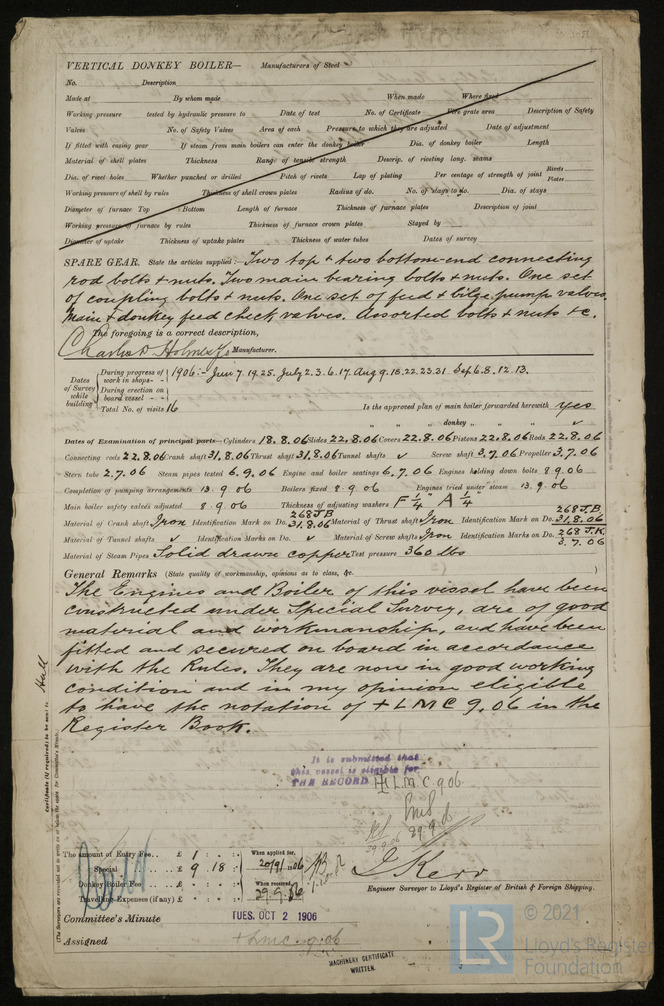 VERTICAL DONKEY BOILER— Manufacturers of Steel
No. Description
Made at By whom made When made Where fixed
Working pressure tested by hydraulic pressure to Date of test No. of Certificate Fire grate area Description of Safety
Valves No. of Safety Valves Area of each Pressure to which they are adjusted Date of adjustment
If fitted with easing gear If steam from main boilers can enter the donkey boiler Dia. of donkey boiler Length
Material of shell plates Thickness Range of tensile strength Descrip. of riveting long. seams
Dia. of rivet holes Whether punched or drilled Pitch of rivets Lap of plating Per centage of strength of joint Rivets Plates
Working pressure of shell by rules Thickness of shell crown plates Radius of do. No. of stays to do. Dia. of stays
Diameter of furnace Top Bottom Length of furnace Thickness of furnace plates Description of joint
Working pressure of furnace by rules Thickness of furnace crown plates Stayed by
Diameter of uptake Thickness of uptake plates Thickness of water tubes Dates of survey
SPARE GEAR. State the articles supplied:— Two top & two bottom-end connecting
rod bolts & nuts. Two main bearing bolts & nuts. One set
of coupling bolts & nuts. One set of feed & bilge pump valves.
Main & donkey feed check valves. Assorted bolts & nuts &c.
The foregoing is a correct description,
Charles D Holmes Manufacturer.
Dates of Survey while building
During progress of work in shops- - 1906:- Jun 7.19.25. July 2.3.6.17. Aug 9.18.22.23.31 Sep 6.8.12.13.
During erection on board vessel - -
Total No. of visits 16 Is the approved plan of main boiler forwarded herewith yes
" " " donkey " " "
Dates of Examination of principal parts—Cylinders 18.8.06 Slides 22.8.06 Covers 22.8.06 Pistons 22.8.06 Rods 22.8.06
Connecting rods 22.8.06 Crank shaft 31.8.06 Thrust shaft 31.8.06 Tunnel shafts ✓ Screw shaft 3.7.06 Propeller 3.7.06
Stern tube 2.7.06 Steam pipes tested 6.9.06 Engine and boiler seatings 6.7.06 Engines holding down bolts 8.9.06
Completion of pumping arrangements 13.9.06 Boilers fixed 8.9.06 Engines tried under steam 13.9.06
Main boiler safety valves adjusted 8.9.06 Thickness of adjusting washers F 1/4" A 1/4"
Material of Crank shaft Iron Identification Mark on Do. 268 J.B 31.8.06 Material of Thrust shaft Iron Identification Mark on Do. 268 J.B. 31.8.06
Material of Tunnel shafts ✓ Identification Marks on Do. ✓ Material of Screw shafts Iron Identification Marks on Do. 268 J.K. 3.7.06
Material of Steam Pipes Solid drawn copper Test pressure 360 lbs
General Remarks (State quality of workmanship, opinions as to class, &c.
The Engines and Boiler of this vessel have been
constructed under Special Survey, are of good
material and workmanship, and have been
fitted and secured on board in accordance
with the Rules. They are now in good working
condition and in my opinion eligible
to have the notation of + LMC 9.06 in the
Register Book.
It is submitted that
this vessel is eligible for
THE RECORD + L.M.C. 9.06
29.9.06
29.9.06
Certificate (if required) to be sent to Hull
The amount of Entry Fee.. £ 1 : : When applied for,
Special £ 9 . 18 : 20/9/1906
Donkey Boiler Fee £ : : When received,
Travelling Expenses (if any) £ : : 29.9.06
J Kerr
Engineer Surveyor to Lloyd's Register of British & Foreign Shipping.
Committee's Minute TUES. OCT 2 1906
Assigned + LMC 9.06
MACHINERY CERTIFICATE
WRITTEN.
LR
© 2021
Lloyd's Register
Foundation